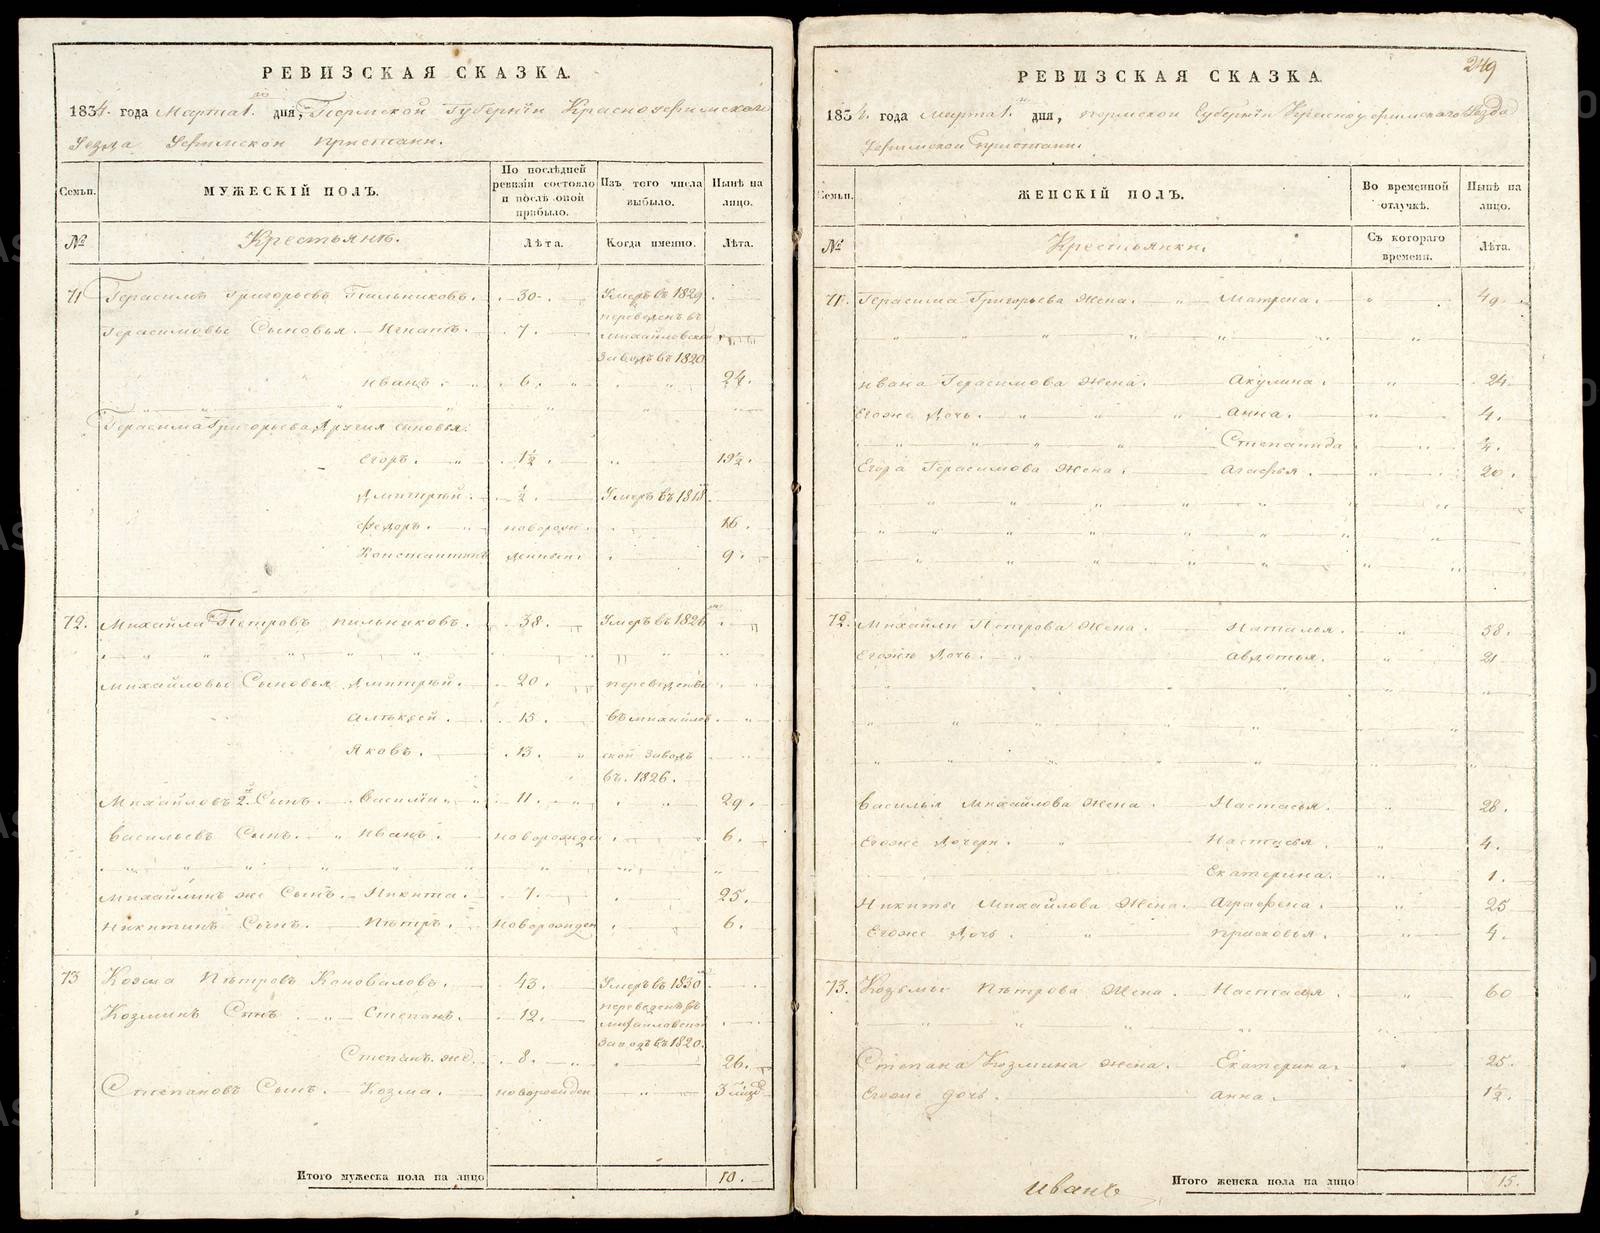 РЕВИЗСКАЯ СКАЗКА.
1834. года Марта 1. дня, Пермской Губернїи Красноуфимскаго
Уезда Уфимской пристани.
Семьи.
МУЖЕСКІЙ ПОЛЪ.
По послѣдней ревизіи состояло и послѣ оной прибыло.
Изъ того числа выбыло.
Нынѣ на лицо.
№
Крестьянѣ.
Лѣта.
Когда именно.
Лѣта.
71 Герасимъ Григорьевъ Пильниковъ. 30. Умеръ въ 1829
Герасимовы Сыновья. Игнатѣ. 7. переведенъ въ Михайловской Заводъ въ 1820
иванъ. 6. 24.
Герасима Григорьева Другия сыновья:
егоръ. 1½. 19½.
Дмитрѣй. ½. Умеръ въ 1818
Федоръ. новорожд. 16.
Константинъ 9.
72. Михайла Петровъ пильниковъ. 38. Умеръ въ 1826
Михайловы Сыновья Дмитрѣй. 20. переведены
алѣксѣй. 15. въ михайлов
Яковъ. 13. ской Заводъ
въ. 1826.
Михайловъ 2. Сынъ. Василїй 11. 29.
Васильевъ Сынъ. иванъ. новорожден 6.
Михайлинъ же Сынъ. Никита. 7. 25.
Никитинъ Сынъ. Пѣтръ. новорожден 6.
73 Козма Пѣтровъ Коноваловъ. 43. Умеръ въ 1830
Козминъ Сынъ. Степанъ. 12. переведенъ въ михайловской Заводъ въ 1820.
Степанъ. же. 8. 26.
Степановъ Сынъ. Козма. новорожден 3
Итого мужеска пола на лицо 10.
249
РЕВИЗСКАЯ СКАЗКА.
1834. года марта 1. дня, пермской Губернїи Красноуфимскаго Уезда
Уфимской пристани.
Семьи.
ЖЕНСКІЙ ПОЛЪ.
Во временной отлучкѣ.
Нынѣ на лицо.
№
Крестьянки.
Съ котораго времени.
Лѣта.
71. Герасима Григорьева жена. Матрена. 49.
ивана Герасимова жена. Акулина. 24.
Егоже Дочь. анна. 4.
Степанида
Егора Герасимова жена. агафья. 20.
72. Михайли Петрова жена. Наталья. 58.
Егоже Дочь. авдотья. 21
Василья Михайлова жена. Настасья. 28.
Егоже Дочери. Настасья. 4.
Екатерина. 1.
Никиты Михайлова жена. аграфена. 25
Егоже Дочь. прасковья. 4.
73. Козьмы Пѣтрова жена. Настасья. 60
Степана Козмина жена. Екатерина. 25.
Егоже дочь. анна. 1½.
Итого женска пола на лицо 15.
иванъ